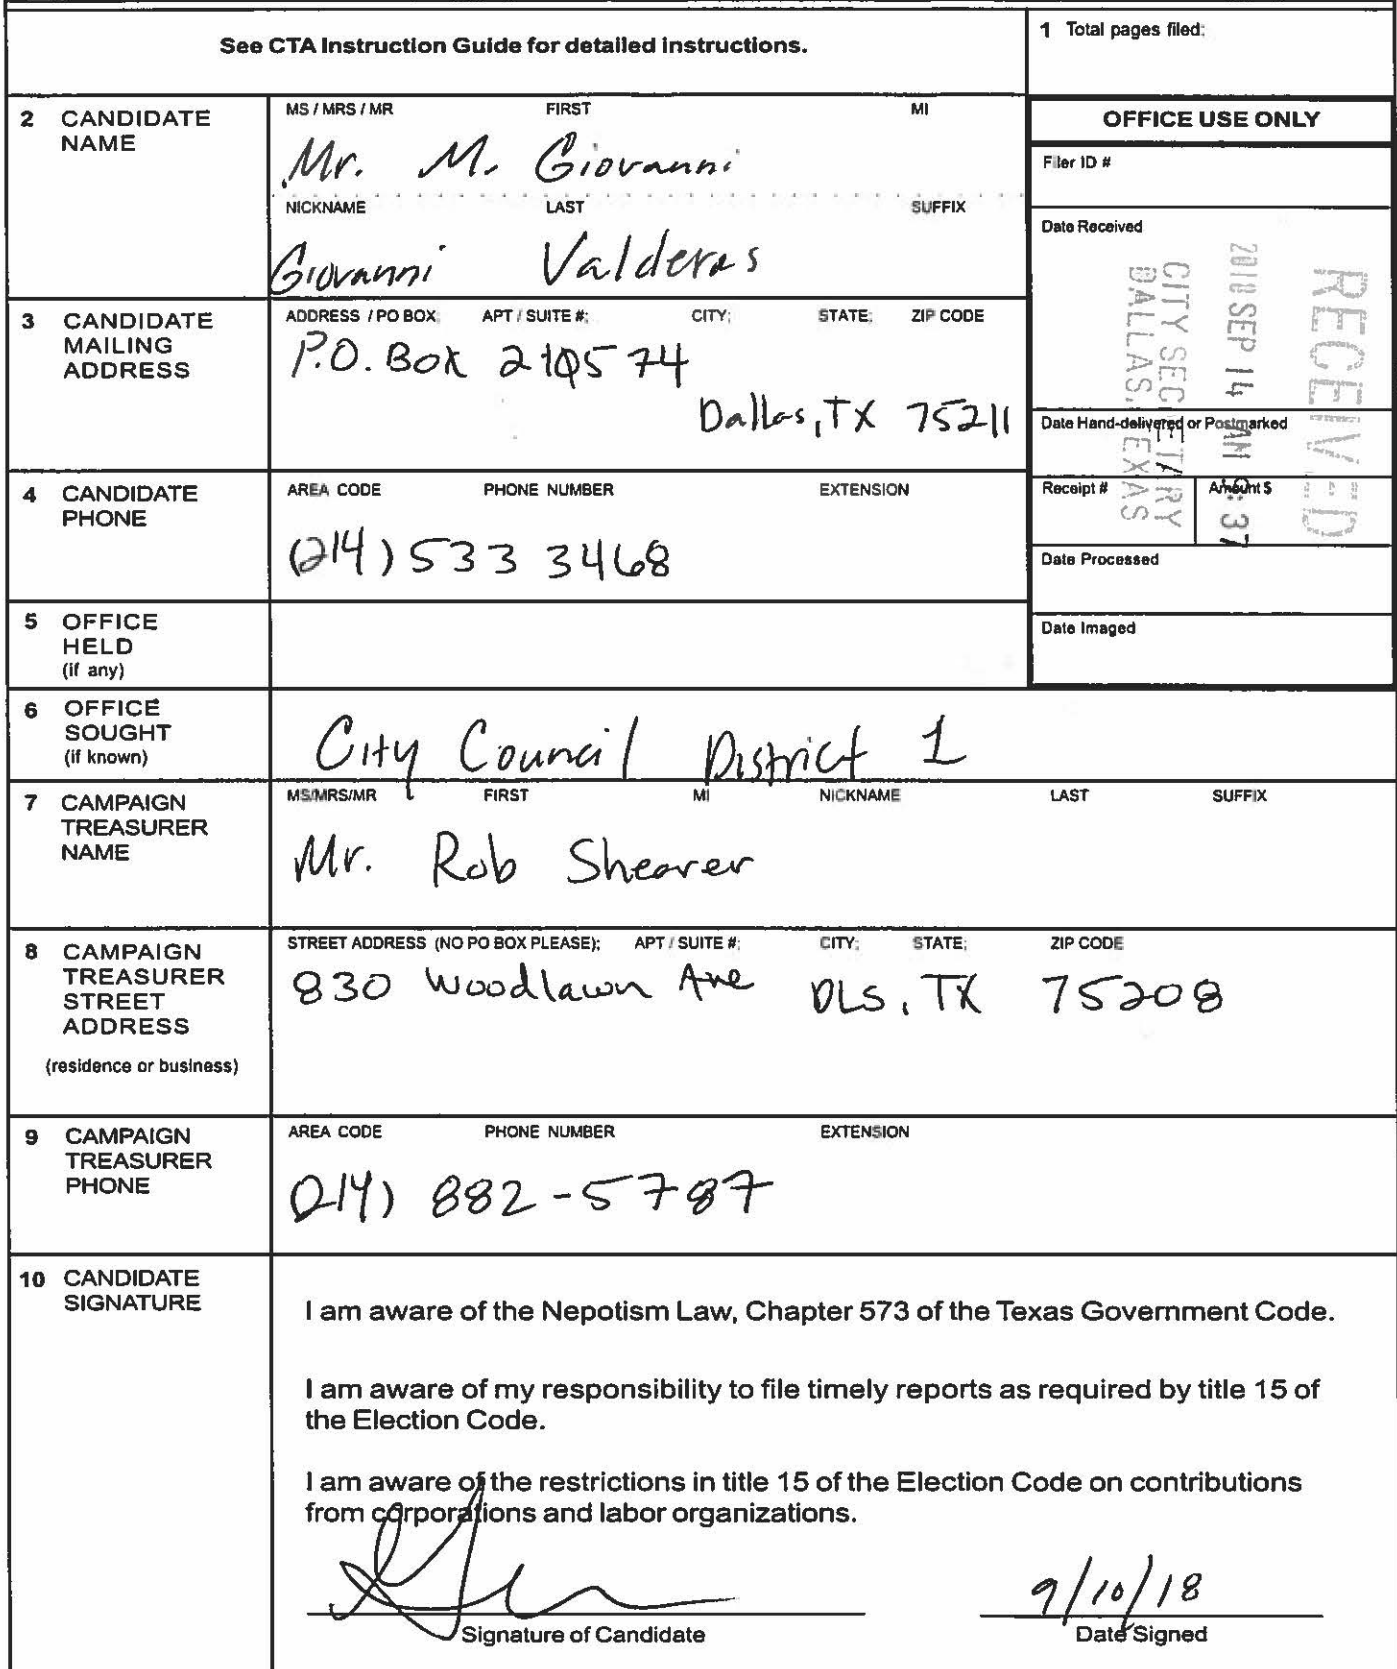 See CTA Instruction Guide for detailed instructions.
1 Total pages filed:
2 CANDIDATE NAME
MS / MRS / MR FIRST MI
Mr. M. Giovanni
NICKNAME LAST SUFFIX
Giovanni Valderas
OFFICE USE ONLY
Filer ID #
Date Received
RECEIVED
2018 SEP 14 AM 9:37
CITY SECRETARY
DALLAS, TEXAS
Date Hand-delivered or Postmarked
Receipt # Amount $
Date Processed
Date Imaged
3 CANDIDATE MAILING ADDRESS
ADDRESS / PO BOX; APT / SUITE #; CITY; STATE; ZIP CODE
P.O. Box 210574
Dallas, TX 75211
4 CANDIDATE PHONE
AREA CODE PHONE NUMBER EXTENSION
(214) 533 3468
5 OFFICE HELD (if any)
6 OFFICE SOUGHT (if known)
City Council District 1
7 CAMPAIGN TREASURER NAME
MS/MRS/MR FIRST MI NICKNAME LAST SUFFIX
Mr. Rob Shearer
8 CAMPAIGN TREASURER STREET ADDRESS
(residence or business)
STREET ADDRESS (NO PO BOX PLEASE); APT / SUITE #; CITY; STATE; ZIP CODE
830 Woodlawn Ave DLS, TX 75208
9 CAMPAIGN TREASURER PHONE
AREA CODE PHONE NUMBER EXTENSION
(214) 882-5787
10 CANDIDATE SIGNATURE
I am aware of the Nepotism Law, Chapter 573 of the Texas Government Code.
I am aware of my responsibility to file timely reports as required by title 15 of
the Election Code.
I am aware of the restrictions in title 15 of the Election Code on contributions
from corporations and labor organizations.
9/10/18
Signature of Candidate Date Signed